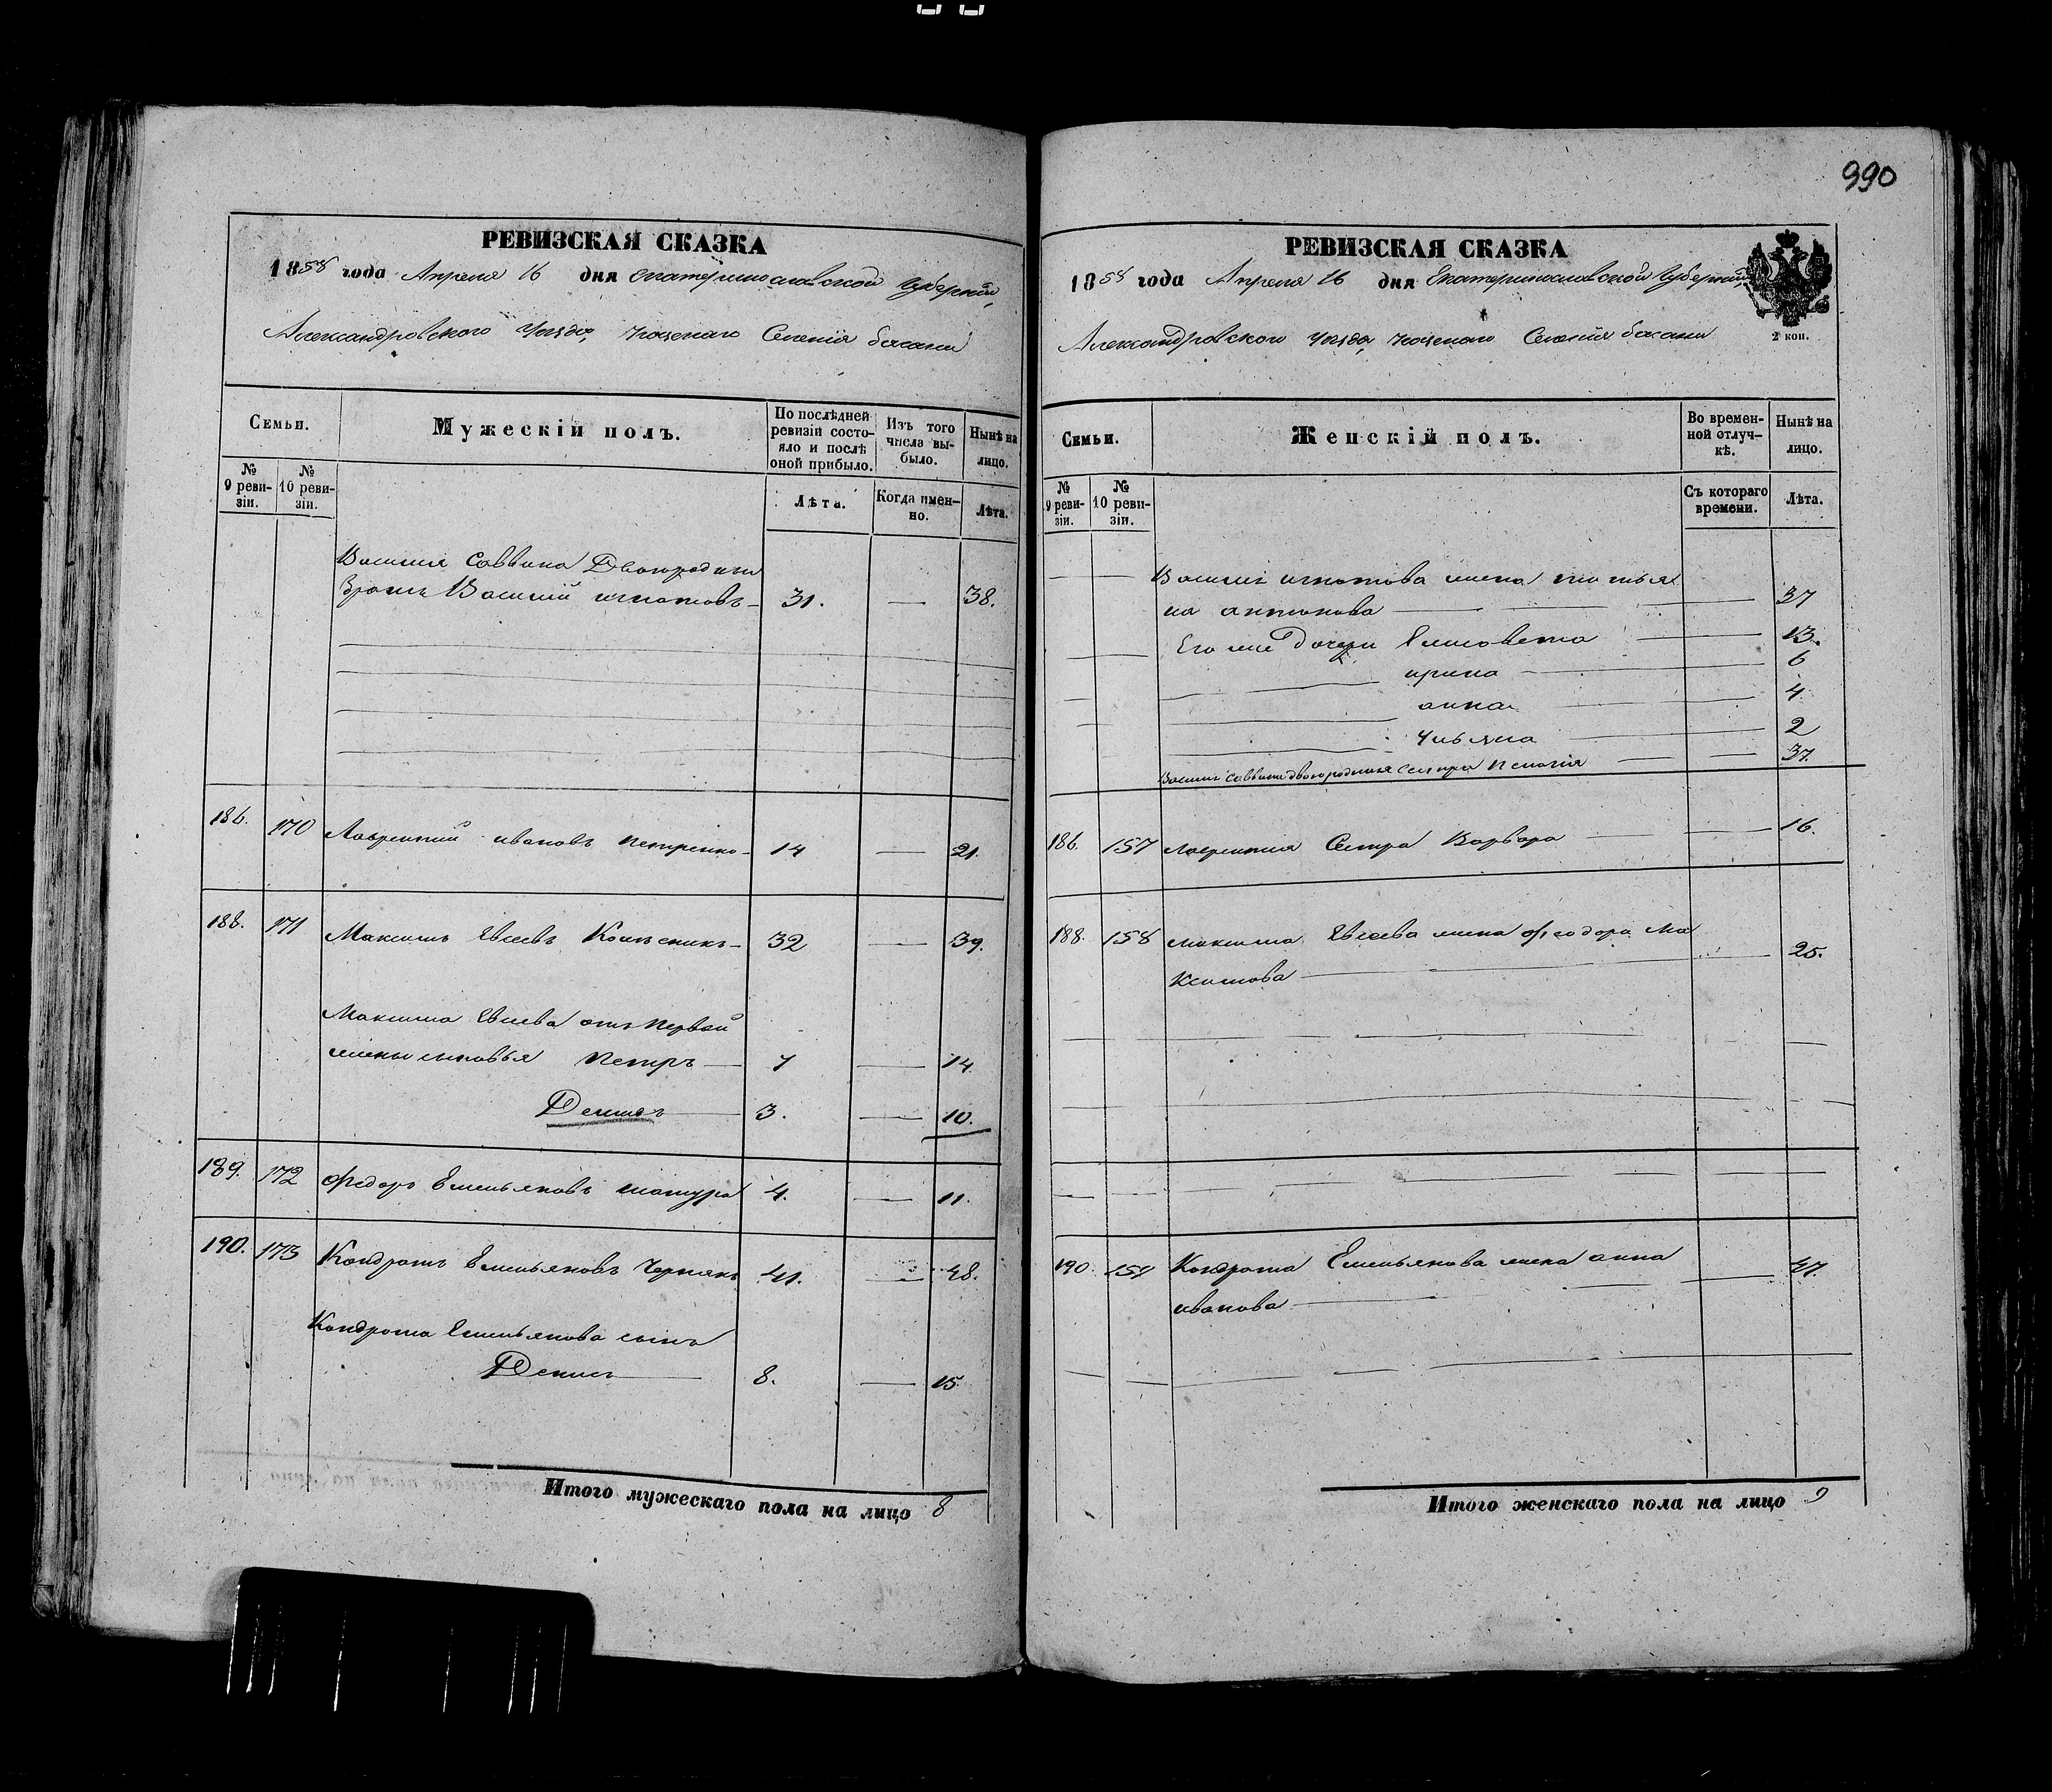 990
РЕВИЗСКАЯ СКАЗКА
1858 года Апреля 16 дня Екатеринославской Губернии,
Александровского уезда, казенаго Селения басани
Семьи.
Мужескій полъ.
По послѣдней ревизіи состо-
яло и послѣ оной прибыло.
Изъ того числа вы-
было.
Нынѣ на лицо.
№ 9 реви-
зіи.
№ 10 реви-
зіи.
Лѣта.
Когда имен-
но.
Лѣта.
Василия Саввина Двоюродный
Братъ Василий игнатовъ 31. — 38.
186. 170 Лаврентий ивановъ петренко 14 — 21.
188. 171 Максимъ Евсеевъ Колесникъ 32 — 39.
Максима Евсеева отъ первой
жены сыновья Петръ 7 — 14.
Демьянъ 3. — 10.
189. 172 Федоръ Емельяновъ шатура 4. — 11.
190. 173 Кондратъ Емельяновъ Чернякъ 41. — 48.
Кондрата Емельянова сынъ
Денисъ 8. — 15.
Итого мужескаго пола на лицо 8
РЕВИЗСКАЯ СКАЗКА
1858 года Апреля 16 дня Екатеринославской Губернии,
Александровского уезда, казенаго Селения басани
2 коп.
Семьи.
Женскій полъ.
Во времен-
ной отлуч-
кѣ.
Нынѣ на лицо.
№ 9 реви-
зіи.
№ 10 реви-
зіи.
Съ котораго времени.
Лѣта.
Василия игнатова жена татья
на антонова 37
Его же дочери Елисовета 13.
ирина 6
анна 4.
ульяна 2
Василия Саввина двоюродная Сестра Пелагия 37.
186. 157 Лаврентия Сестра Варвара 16.
188. 158 Максима Евсеева жена феодора Ма
ксимова 25.
190. 159 Кондрата Емельянова жена анна
иванова 47.
Итого женскаго пола на лицо 9